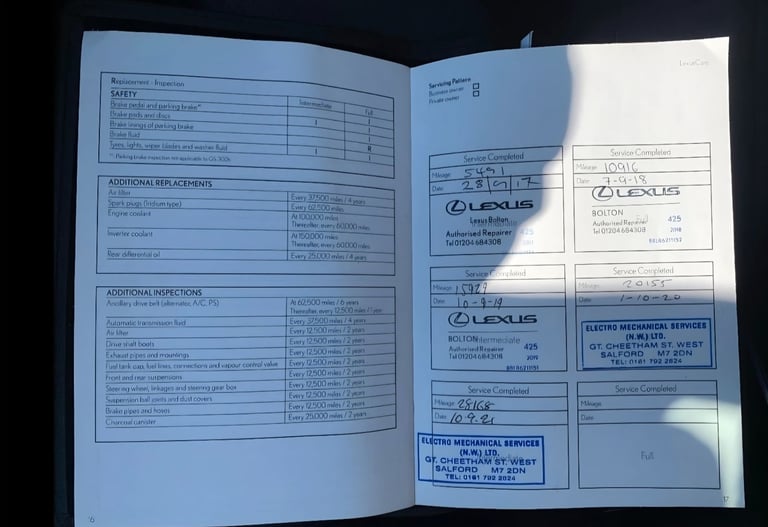 Replacement - Inspection
SAFETY
Intermediate Full
Brake pedal and parking brake**
Brake pads and discs I I
Brake linings of parking brake I
Brake fluid R
Tyres, lights, wiper blades and washer fluid I I
** Parking brake inspection not applicable to GS 300h
ADDITIONAL REPLACEMENTS
Air filter Every 37,500 miles / 4 years
Spark plugs (Iridium type) Every 62,500 miles
Engine coolant At 100,000 miles
Thereafter, every 60,000 miles
Inverter coolant At 150,000 miles
Thereafter, every 60,000 miles
Rear differential oil Every 25,000 miles / 4 years
ADDITIONAL INSPECTIONS
Ancillary drive belt (alternator, A/C, PS) At 62,500 miles / 6 years
Thereafter, every 12,500 miles / 1 year
Automatic transmission fluid Every 37,500 miles / 4 years
Air filter Every 12,500 miles / 2 years
Drive shaft boots Every 12,500 miles / 2 years
Exhaust pipes and mountings Every 12,500 miles / 2 years
Fuel tank cap, fuel lines, connections and vapour control valve Every 12,500 miles / 2 years
Front and rear suspensions Every 12,500 miles / 2 years
Steering wheel, linkages and steering gear box Every 12,500 miles / 2 years
Suspension ball joints and dust covers Every 12,500 miles / 2 years
Brake pipes and hoses Every 12,500 miles / 2 years
Charcoal canister Every 25,000 miles / 2 years
16
LexusCare
Servicing Pattern
Business owner
Private owner
Service Completed
Mileage 5491
Date 28/9/17
LEXUS
Lexus Bolton
Intermediate
Authorised Repairer 425
Tel 01204 684308
Service Completed
Mileage 10916
Date 7-9-18
LEXUS
BOLTON
Full
Authorised Repairer 425
Tel 01204 684308 2018
Service Completed
Mileage 15929
Date 10-9-19
LEXUS
BOLTON Intermediate
Authorised Repairer 425
Tel 01204 684308 2019
Service Completed
Mileage 20155
Date 1-10-20
ELECTRO MECHANICAL SERVICES
(N.W.) LTD.
GT. CHEETHAM ST. WEST
SALFORD M7 2DN
TEL: 0161 792 2824
Service Completed
Mileage 28168
Date 10.9.21
ELECTRO MECHANICAL SERVICES
(N.W.) LTD.
Intermediate
GT. CHEETHAM ST. WEST
SALFORD M7 2DN
TEL: 0161 792 2824
Service Completed
Mileage
Date
Full
17